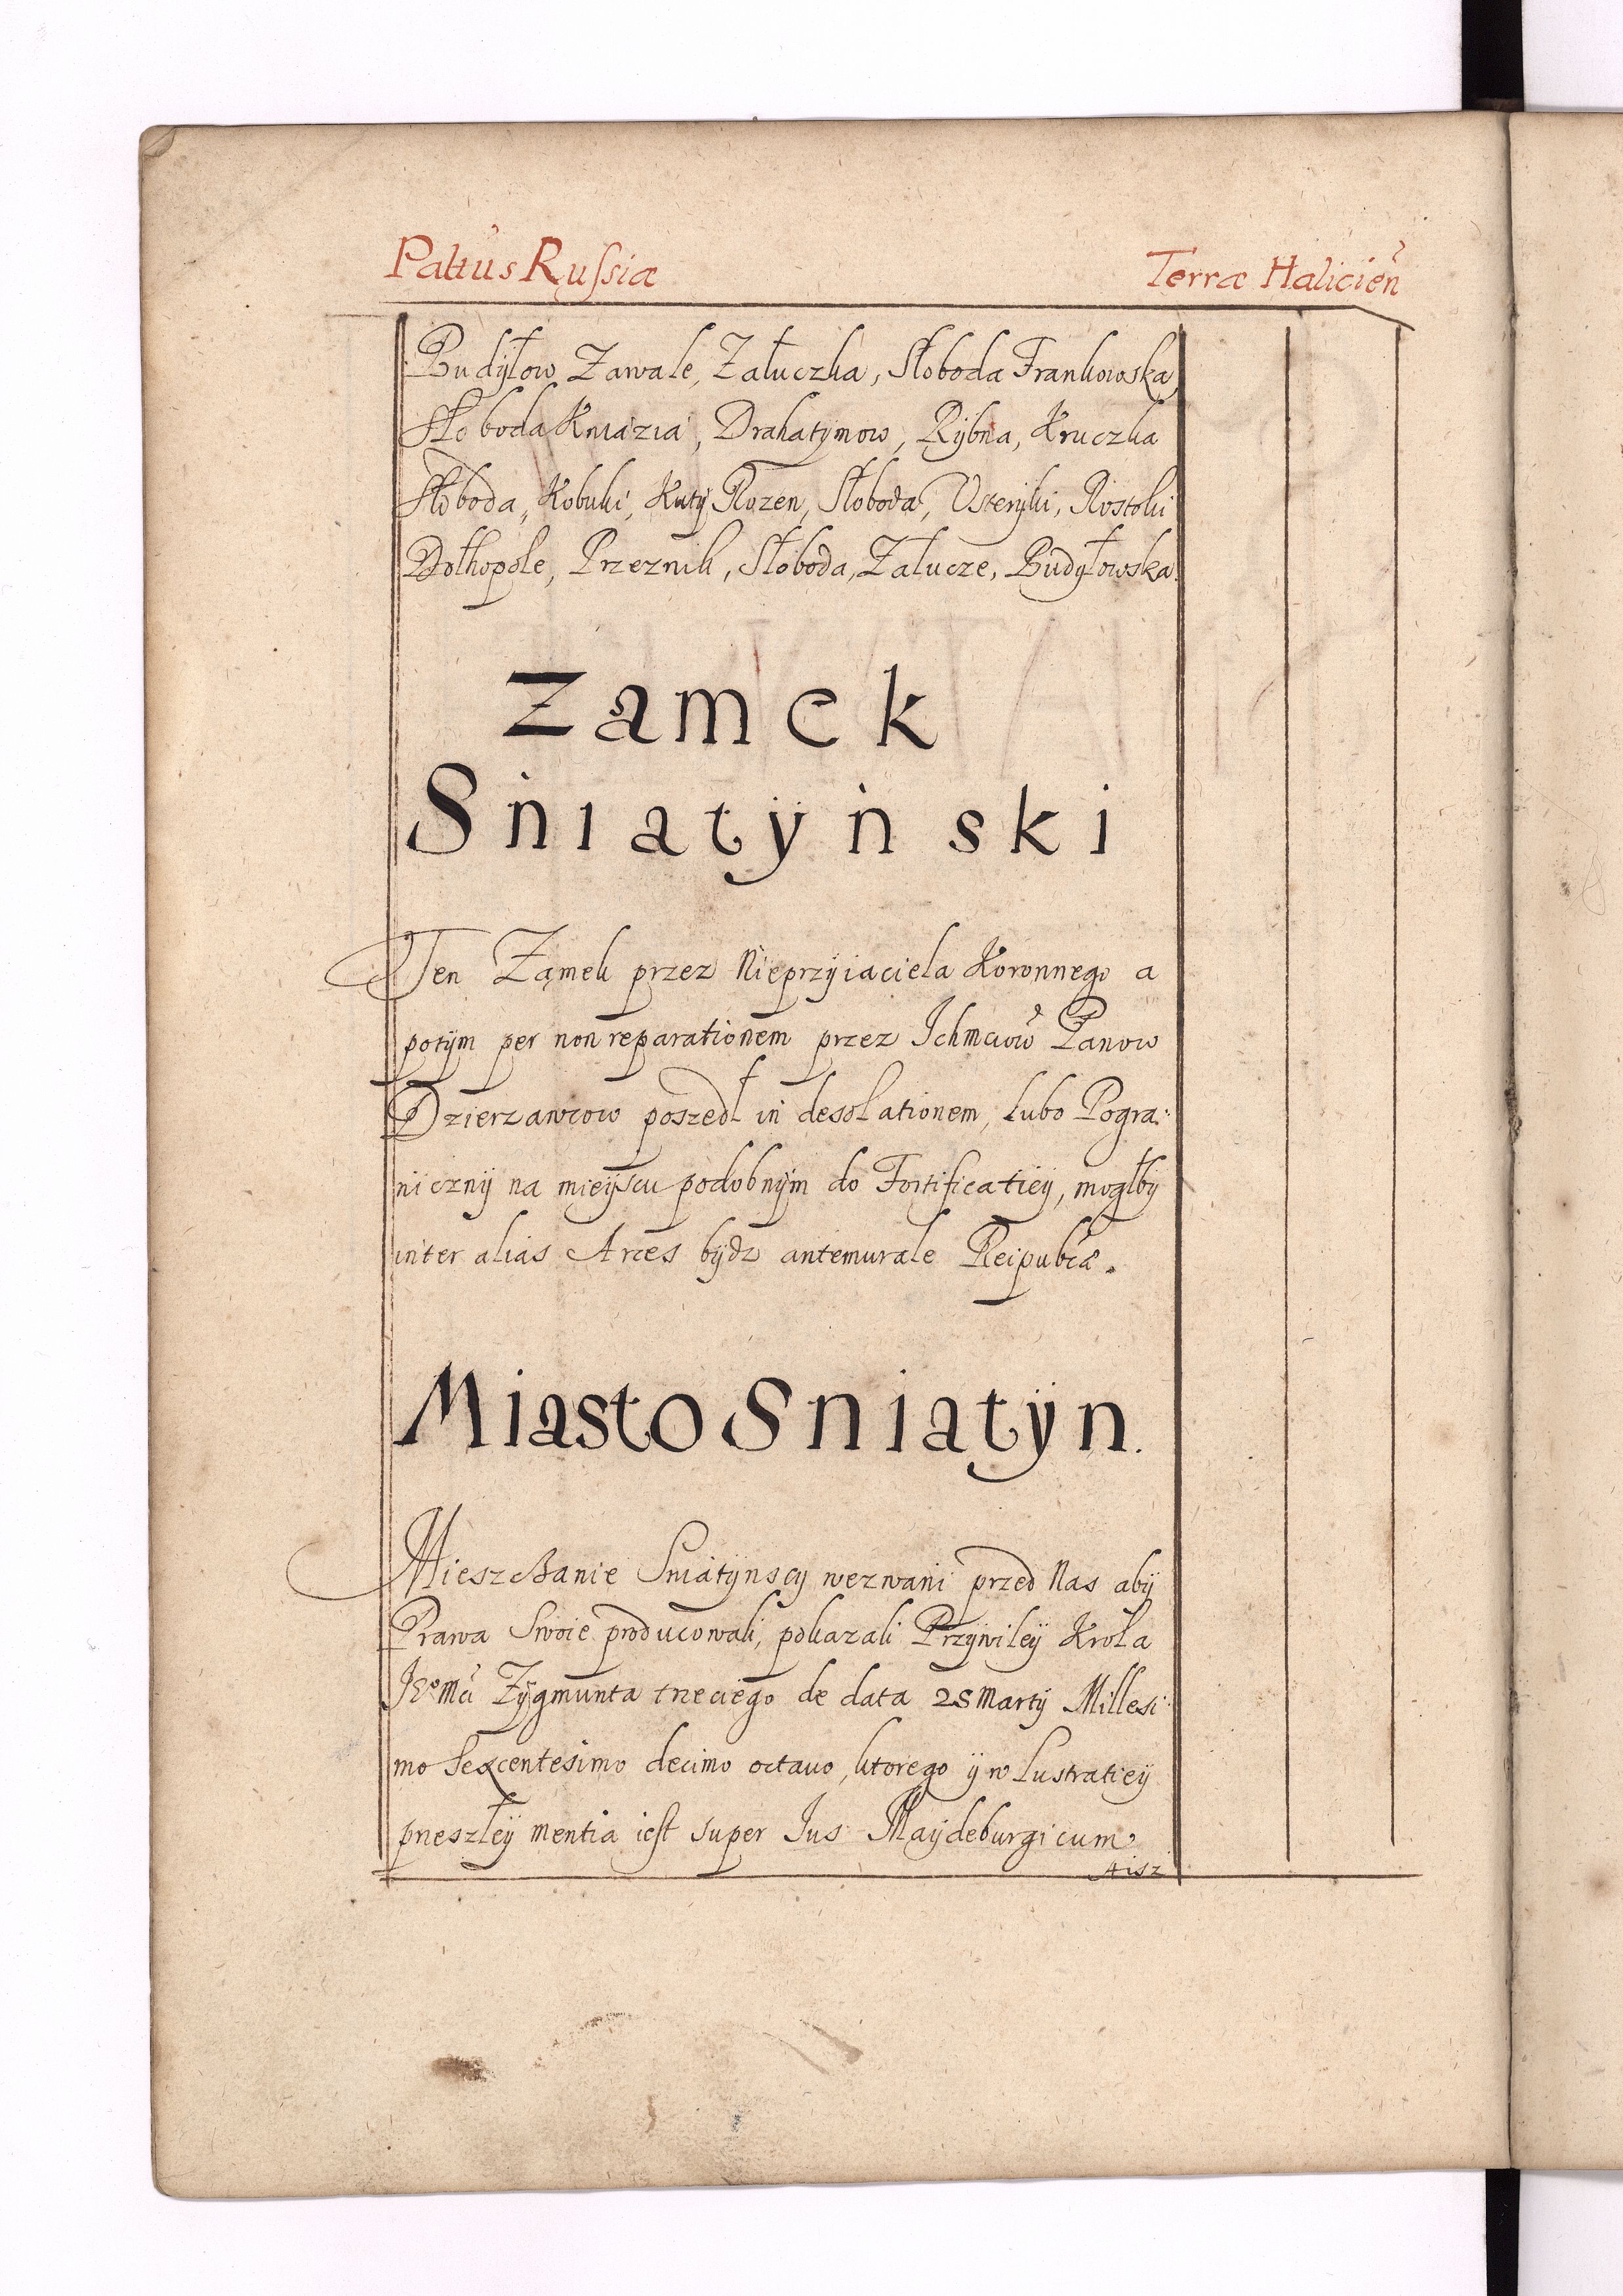 Paltus Russiæ
Terræ Halicień
Budyłow Zawale, Załuczka, Słoboda Frankowska,
Słoboda Kniazia, Drahatymow, Rybna, Kruczka
Słoboda, Kobuki, Kuty Rozen, Słoboda, Usteryki, Rostoki
Dołhopole, Przeznik, Słoboda, Zalucze, Budyłowska.
Zamek
Sniatyński
Ten Zamek przez Nieprzyiaciela Koronnego a
potym per non reparationem przez Ichmciow Panow
Dzierzawcow poszedł in desolationem, lubo Pogra:
niczny na mieyscu podobnym do Fortificatiey, mogłby
inter alias Arces bydz antemurale Reipubcæ.
Miasto Sniatyn.
Mieszczanie Sniatynscy wezwani przed Nas aby
Prawa Swoie producowali, pokazali Przywiley Krola
Jeº Mci Zygmunta trzeciego de data 28 Marty Millesi:
mo Sexcentesimo decimo octauo, ktorego y w Lustratiey
przeszłey mentia iest super Jus Maydeburgicum
Aisz